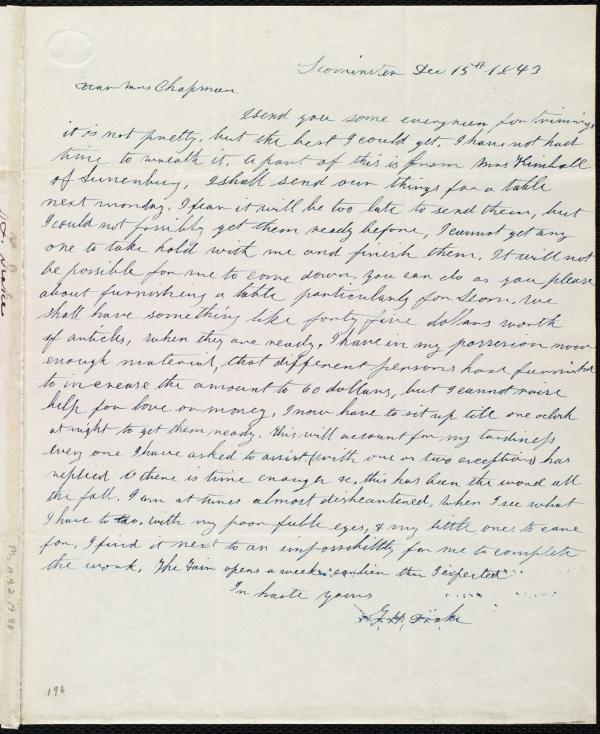 Leominster Dec 15th 1843
Dear Mrs Chapman
I send you some evergreen for triming,
it is not pretty, but the best I could get. I have not had
time to wreath it. A part of this is from Mrs Kimball
of Lunenburg, I shall send our things for a table
next monday. I fear it will be too late to send them, but
I could not possibly get them ready before, I cannot get any
one to take hold with me and finish them. It will not
be possible for me to come down. You can do as you please
about furnishing a table particularly for Leom. We
shall have something like forty five dollars worth
of articles, when they are ready. I have in my possession now
enough material, that different persons have furnished
to increase the amount to 60 dollars, but I cannot raise
help for love or money. I now have to sit up till one oclock
at night to get them ready. This will account for my tardiness
every one I have asked to assist (with one or two exceptions) has
replied O there is time enough &c, this has been the word all
the fall. I am at times almost disheartened, when I see what
I have to do, with my poor feble eyes, & my little ones to care
for. I find it next to an impossibility for me to complete
the work. The Fair opens a week earlier than I expected
In haste yours
Drake
196
Drake
Ms. A.9.2.19.88